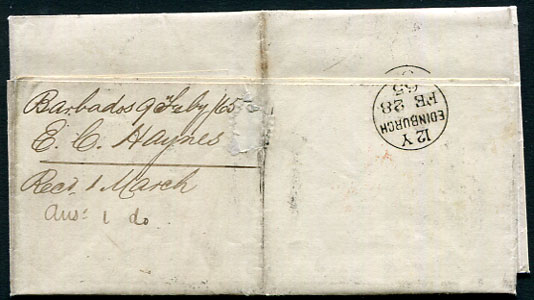 Barbados 9th Feby /65
E. C. Haynes
Recd 1 March
Ans: 1 do
12 Y
EDINBURGH
FE 28
65